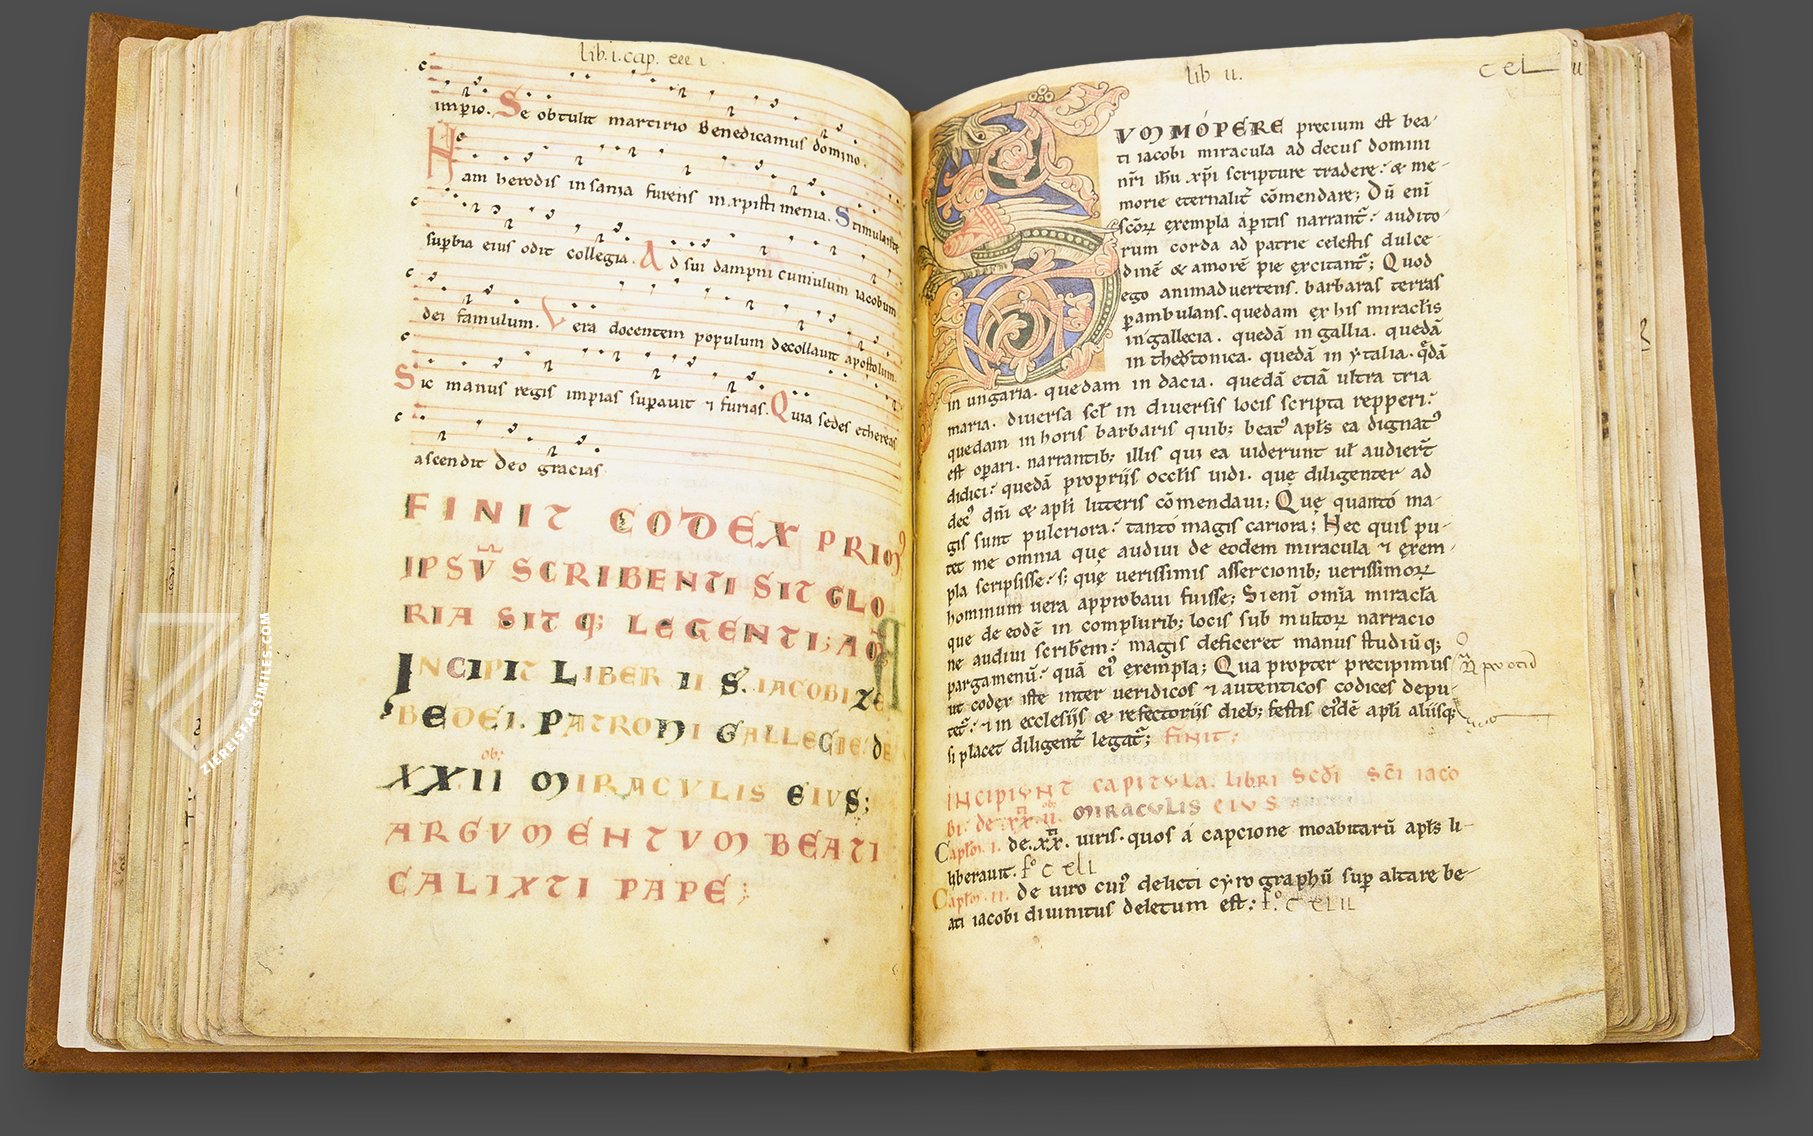 lib. i. cap. xxx i
imp̄io. Se obtulit martirio Benedicamus domino.
Nam herodis insania furens in xp̄isti menia. Stimulante
sup̄bia eius odit collegia. Ad sui dampni cumulum iacobum
dei famulum. Vera docentem populum decollauit apostolum.
Sic manus regis impias sup̄auit ⁊ furias. Quia sedes ethereas
ascendit deo gracias.
FINIT CODEX PRIMꝰ
IPSV̄ SCRIBENTI SIT GLO
RIA SITQ; LEGENTI; AM̄
INCIPIT LIBER II S. IACOBI ZE
BEDEI. PATRONI GALLECIE. DE
XXII MIRACVLIS EIVS;
ARGVMENTVM BEATI
CALIXTI PAPE;
lib ii.
CEL
SVMMOPERE precium est bea-
ti iacobi miracula ad decus domini
nr̄i ih̄u xp̄i scripture tradere: & me-
morie eternalit̄ cōmendare; Dū enī
sc̄oꝝ exempla a peritis narrant̄: audito-
rum corda ad patrie celestis dulce-
dinē & amorē pie excitant̄; Quod
ego animaduertens. barbaras terras
ꝑambulans. quedam ex his miraclis
in gallecia. quedā in gallia. quedā
in theotonica. quedā in ytalia. q̄dā
in ungaria. quedam in dacia. quedā etiā ultra tria
maria. diuersa scł in diuersis locis scripta repperi:
quedam in horis barbaris quib; beatꝰ apłs ea dignatꝰ
est oꝑari. narrantib; illis qui ea uiderunt uł audier̄t
didici: quedā propriis occłis uidi. quę diligenter ad
decꝰ dn̄i & apłi litteris cōmendaui; Quę quanto ma-
gis sunt pulcriora: tanto magis cariora; Nec quis pu-
tet me omnia quę audiui de eodem miracula ⁊ exem-
pla scripsisse: s; quę uerissimis assercionib; uerissimoꝝ
hominum uera approbaui fuisse; Si enī om̄ia miracła
que de eodē in complurib; locis sub multoꝝ narracio
ne audiui scriberem: magis deficeret manus studiūq;
pargamenū: quā eiꝰ exempla; Qua propter precipimus
ut codex iste inter ueridicos ⁊ autenticos codices depu-
tet̄: ⁊ in ecclesiis & refectoriis dieb; festis eidē apłi aliisq;
si placet diligent̄ legat̄; finit;
INCIPIUNT CAPITULA. LIBRI Sc̄di Sc̄i iaco
bi. de .xx.ii. MIRACULIS EIUS
Capłm. i. de .xx. uiris. quos a capcione moabitarū apłs li-
liberauit. fº C XLI
Capłm. ii. De uiro cuiꝰ delicti cyrographū suꝑ altare be-
ati iacobi diuinitus deletum est; fº. C XLII
ZIEREISFACSIMILES.COM